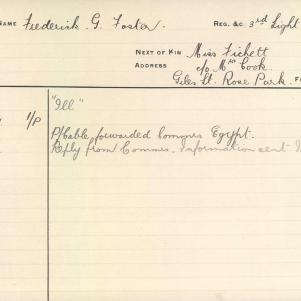 NAME Frederick G. Foster. REG. &C. 3rd Light
NEXT OF KIN Miss Fickett
ADDRESS c/o Mrs Cook.
Giles St. Rose Park.
"Ill"
1/P P/Cable forwarded Commrs Egypt.
Reply from Commrs. Information sent